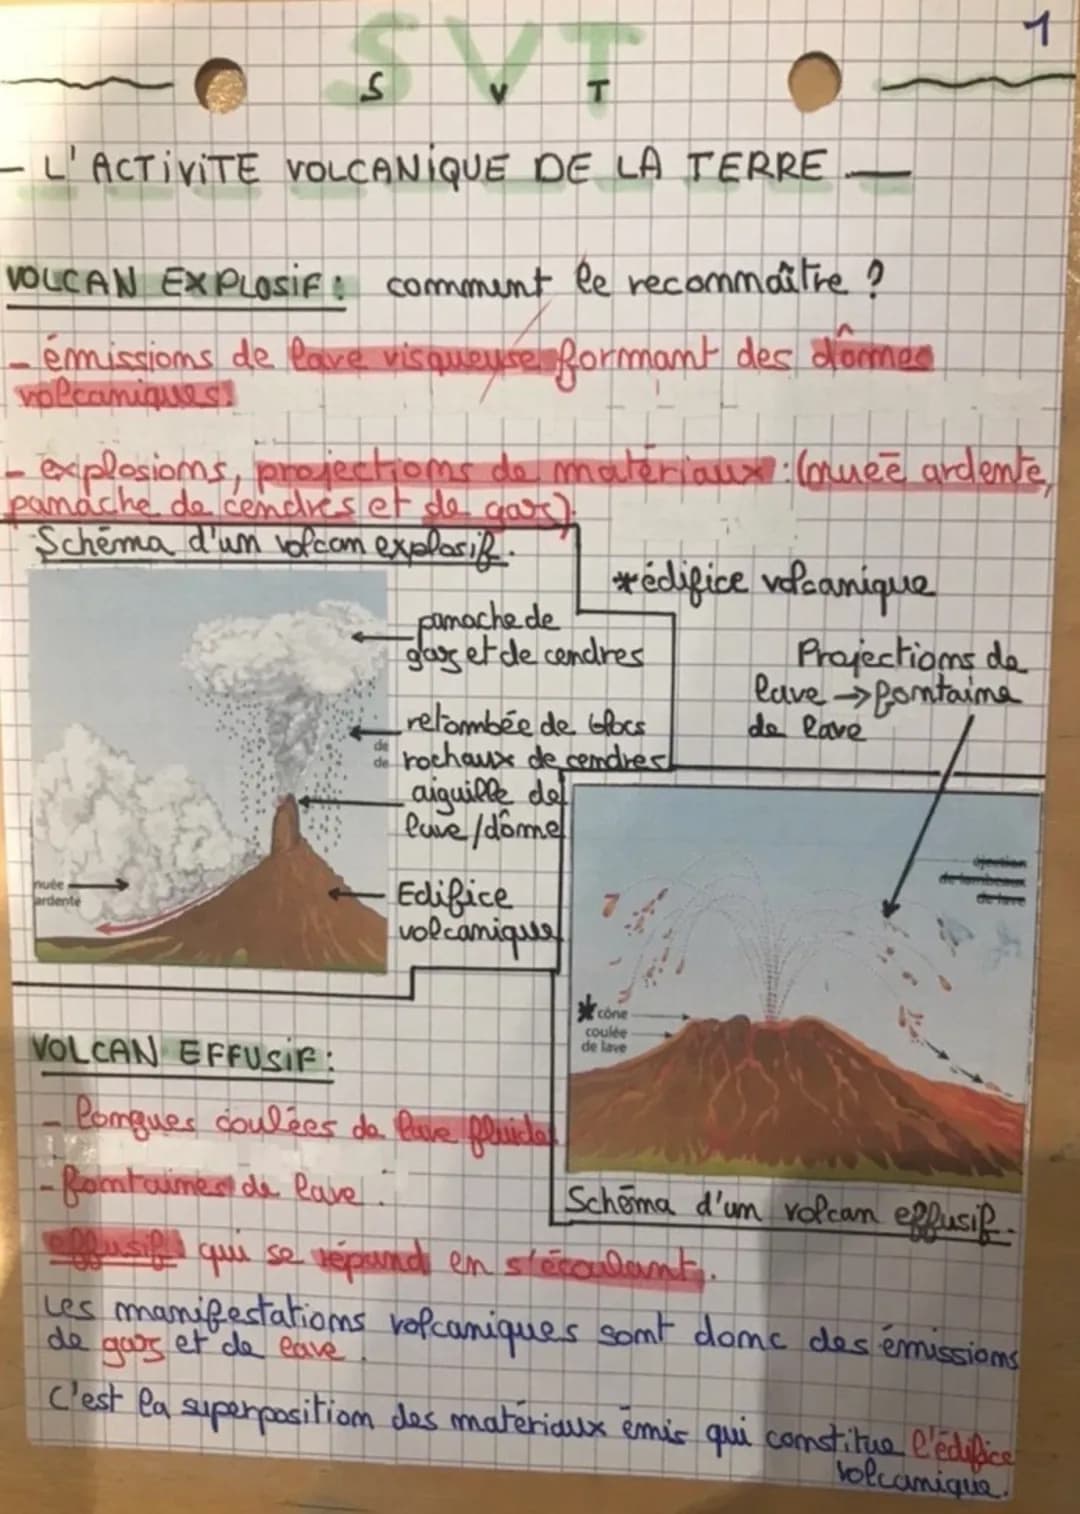 1
SVT
S V T
- L'ACTIVITE VOLCANIQUE DE LA TERRE -
VOLCAN EXPLOSIF : comment le reconnaître ?
- émissions de lave visqueuse formant des dômes
volcaniques.
- explosions, projections de matériaux : (nueé ardente,
panache de cendres et de gaz).
Schéma d'un volcan explosif.
panache de
gaz et de cendres
retombée de blocs
de
de
rochaux de cendres
aiguille de
lave / dôme
Edifice
volcanique
nuée
ardente
*édifice volcanique
Projections de
lave → fontaine
de lave
éjection
de lambeaux
de lave
* cône
coulée
de lave
Schéma d'un volcan effusif.
VOLCAN EFFUSIF :
- longues coulées de lave fluide
- fontaines de lave.
effusif qui se répand en s'écoulant.
Les manifestations volcaniques sont donc des émissions
de gaz et de lave.
C'est la superposition des matériaux émis qui constitue l'édifice
volcanique.